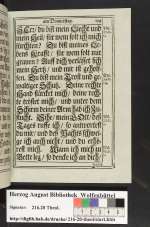 am Donnerstag.
HErr/ du bist mein Liecht und
mein Heil/ für wem solt ich mich
förchten? Du bist meines Le-
bens Krafft/ für wem solt mir
grauen? Auff dich verlässet sich
mein Hertz/ und mir ist geholf-
fen. Du bist mein Trost und ge-
waltiger Schutz. Deine rechte
Hand stärcket mich/ deine rech-
te tröstet mich/ und unter dem
Schirm deiner
Sihe/ mein GOtt/ des
Tages ruffe ich/ so antwortest
du mir/ und des Nachts schweige
ich auch nicht/ und du
mich. Wann ich mich zu
Bette leg/ so dencke ich an dich/
Herzog August Bibliothek Wolfenbüttel
Signatur: 216.20 Theol.
http://diglib.hab.de/drucke/216-20-theol/start.htm